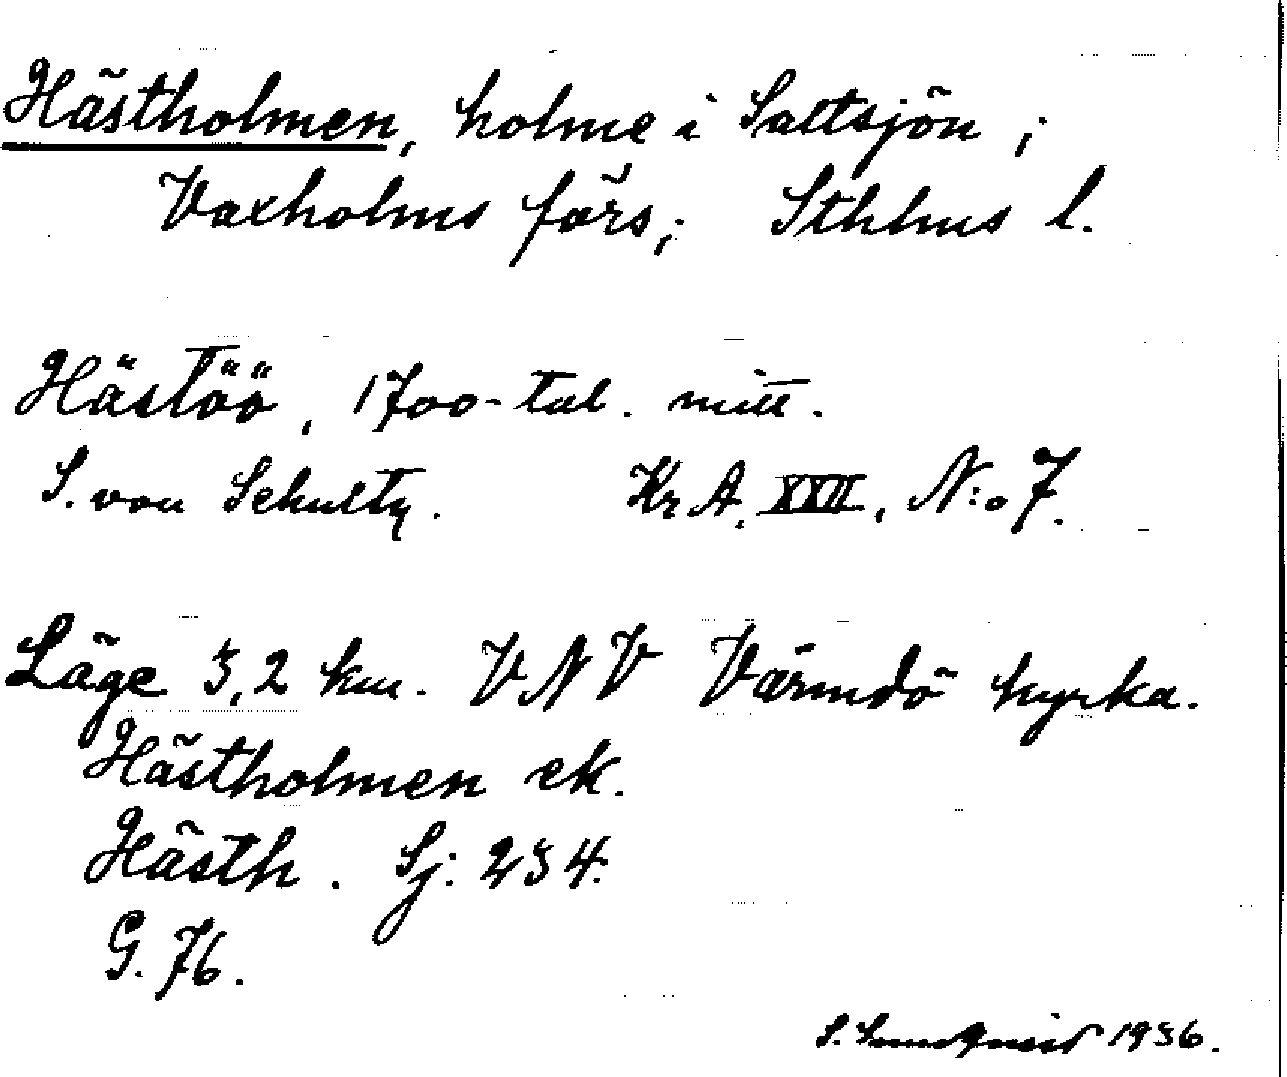 Hästholmen, holme i Saltsjön;
Vaxholms förs; Sthlms l.
Hästöö, 1700-tal. mitt.
S. von Schultz. Kr A. XXII, N:o 7.
Läge 3,2 km. VNV Värmdö kyrka.
Hästholmen ek.
Hästh. Sj: 234.
G. 76.
S. Sundqvist 1936.